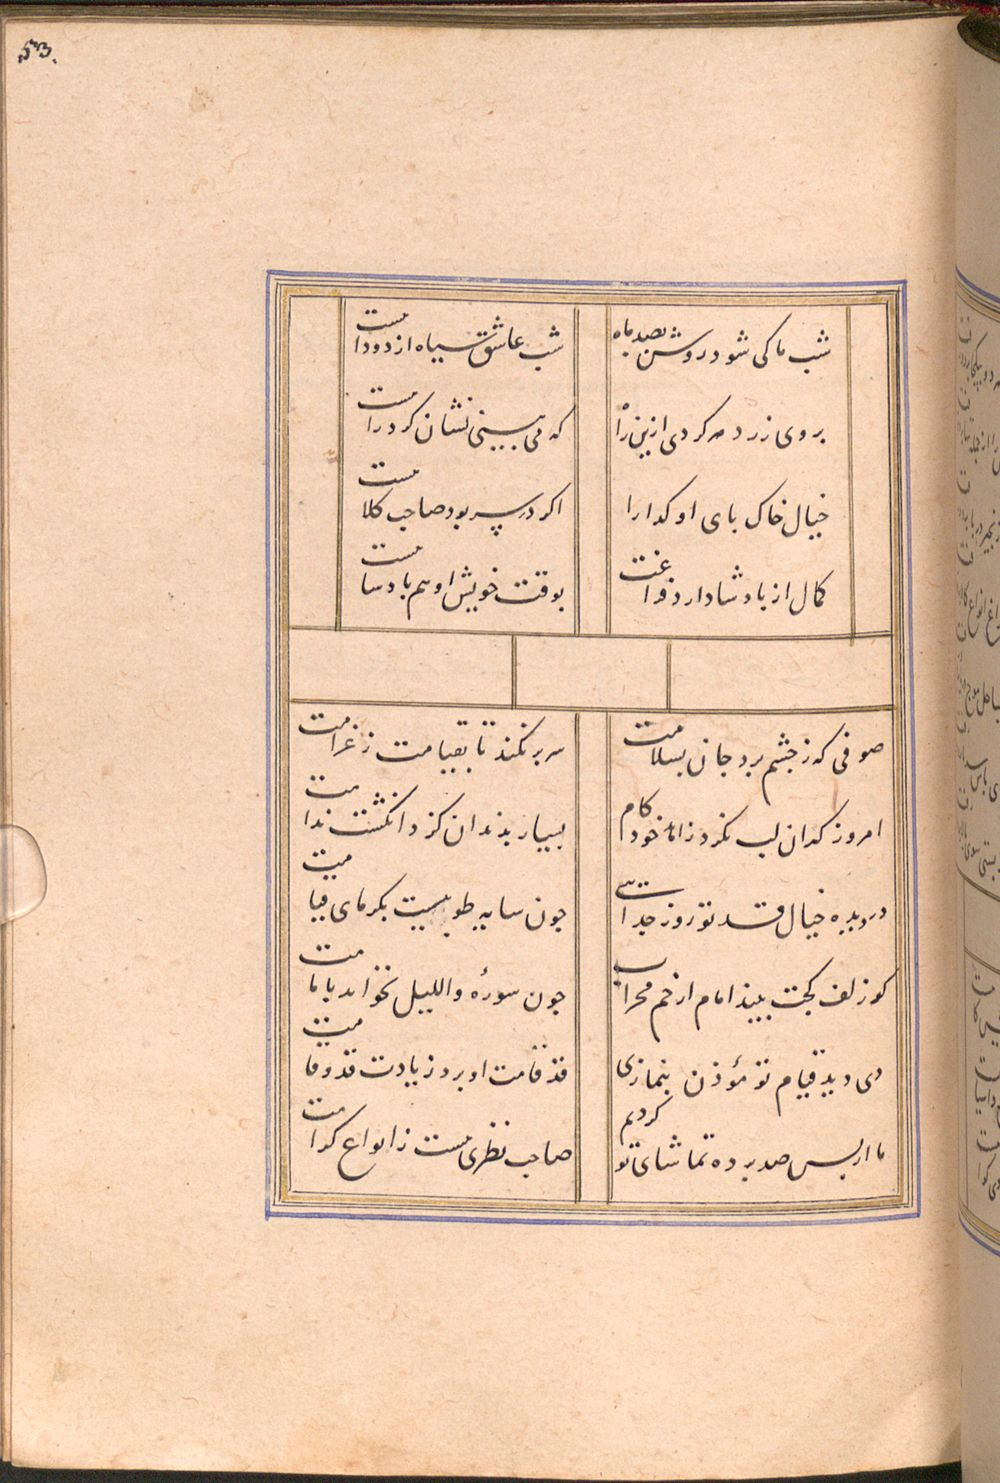 53
شب ما کی شود روشن بصد ماه
شب عاشق سیاه از دود آهست
بروی زرد مه کردی ازین راه
که می بینی نشان کرد راهست
خیال خاک بای او کدا را
اکر در سر بود صاحب کلاهست
کمال از بادشا دارد فراغت
بوقت خویش او هم بادساهست
صوفی که ز جشم برد جان بسلامت
سر بر نکند تا بقیامت ز غرامت
امروز کدان لب نکرد زاهد خودکام
بسیار بدندان کزد انکشت ندامت
در دیده خیال قد تو روز جداست
جون سایه طوبیست بکرمای قیامت
کو زلف کجت بیند امام از خم محراب
جون سورهٔ واللیل نخواند بامامت
دی دید قیام تو مؤذن بنمازی
قد قامت او برد ز یادت قد و قامت
ما از بس صد برده تماشای تو کردیم
صاحب نظری هست ز انواع کرامت